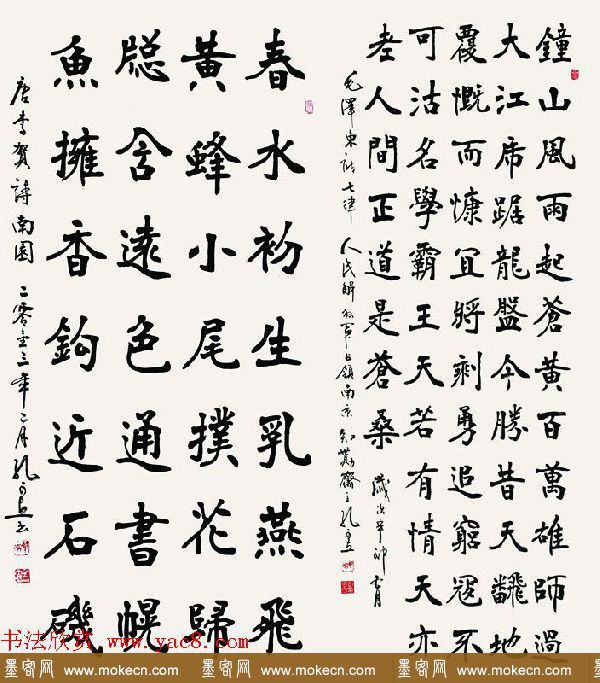 鐘山風雨起蒼黃百萬雄師過
大江虎踞龍盤今勝昔天飜地
覆慨而慷宜將剩勇追窮寇不
可沽名學霸王天若有情天亦
老人間正道是蒼桑
毛澤東詩七律 人民解放軍占領南京
春水初生乳燕飛
黃蜂小尾撲花歸
窗含遠色通書幌
魚擁香鉤近石磯
唐李賀詩南園 二零壹三年二月
书法欣赏 www.yac8.com
墨客网 www.mokecn.com 墨客网 www.mokecn.com 墨客网 www.mokecn.com